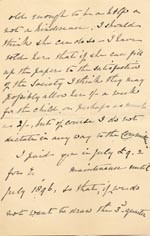 old enough to be a help &
not a hindrance. I should
think she can do so - I have
told her that if she can fill
up the papers to the satisfaction
of the Society I think they may
possibly allow her / a week
for the child or perhaps as much
as 3/-, but of course I do not
dictate in any way to the Committee
I paid you in July £9.2.
for maintenance until
July 1896, so that, if
not want to draw the quarter